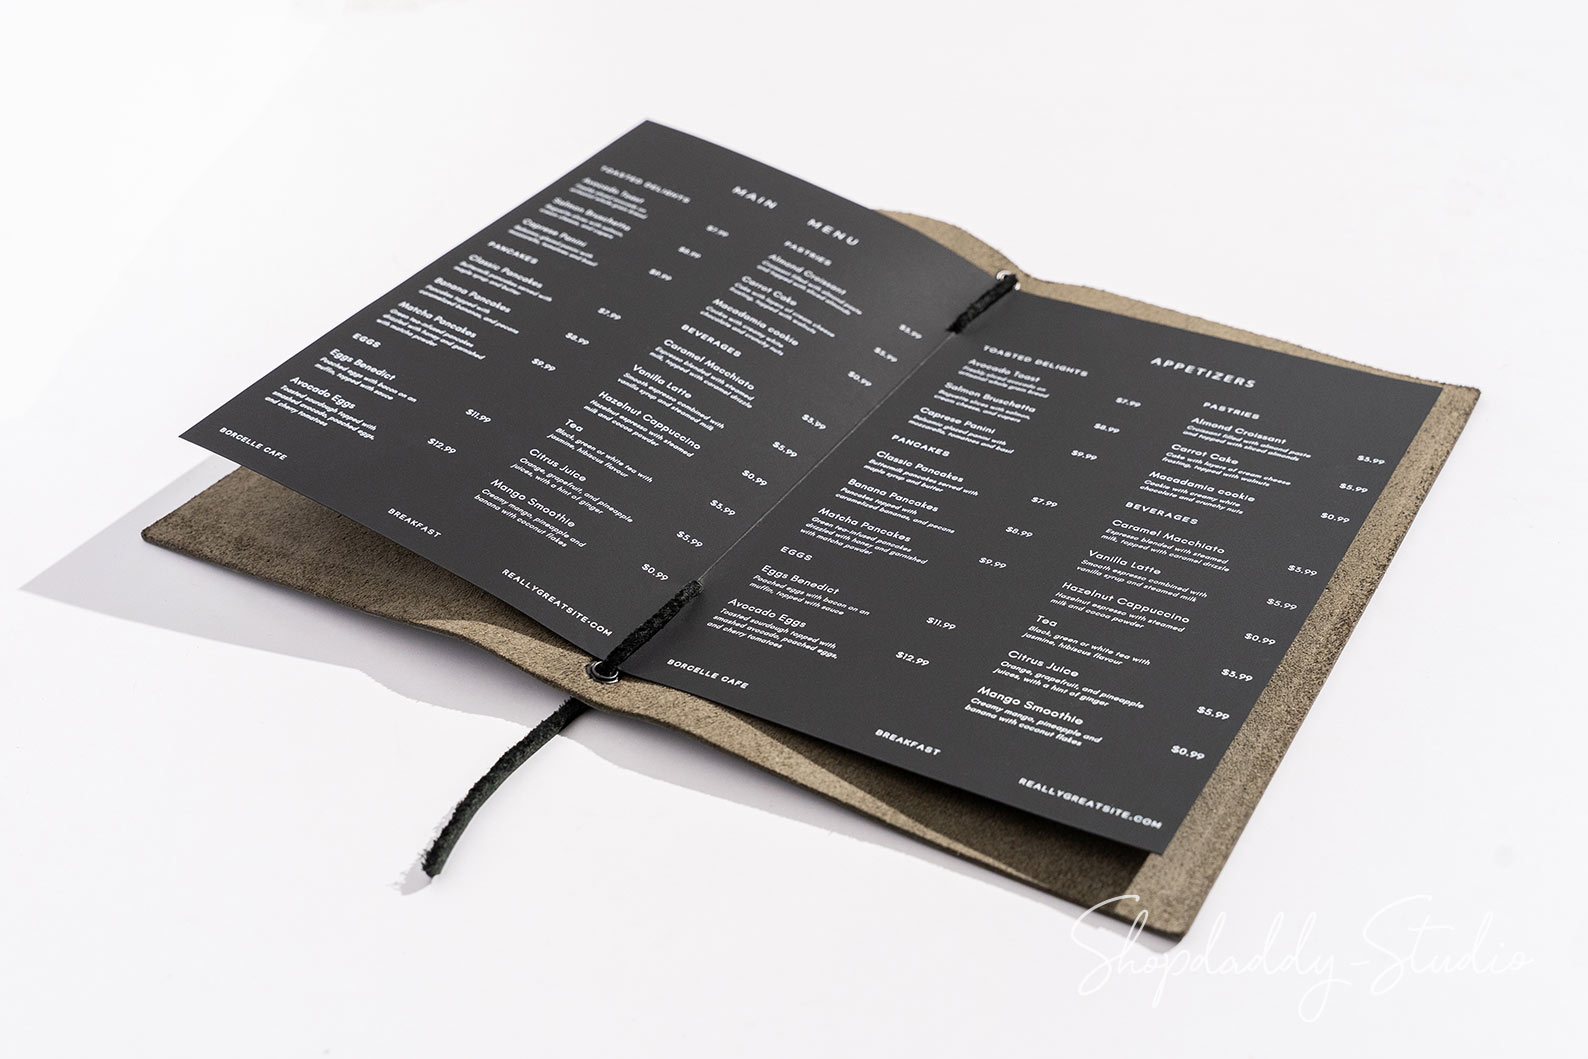 MAIN MENU
TOASTED DELIGHTS
Avocado Toast
$7.99
Salmon Bruschetta
$8.99
Caprese Panini
$9.99
PANCAKES
Classic Pancakes
Buttermilk pancakes served with
maple syrup and butter
$7.99
Banana Pancakes
Pancakes topped with
caramelized bananas, and pecans
$8.99
Matcha Pancakes
Green tea-infused pancakes
drizzled with honey and garnished
with matcha powder
$9.99
EGGS
Eggs Benedict
Poached eggs with bacon on an
muffin, topped with sauce
$11.99
Avocado Eggs
Toasted sourdough topped with
smashed avocado, poached eggs,
and cherry tomatoes
$12.99
PASTRIES
Almond Croissant
Croissant filled with almond paste
and topped with sliced almonds
$3.99
Carrot Cake
Cake with layers of cream cheese
frosting, topped with walnuts
$5.99
Macadamia cookie
Cookie with creamy white
chocolate and crunchy nuts
$0.99
BEVERAGES
Caramel Macchiato
Espresso blended with steamed
milk, topped with caramel drizzle
$3.99
Vanilla Latte
Smooth espresso combined with
vanilla syrup and steamed milk
$5.99
Hazelnut Cappuccino
Hazelnut espresso with steamed
milk and cocoa powder
$0.99
Tea
Black, green or white tea with
jasmine, hibiscus flavour
$3.99
Citrus Juice
Orange, grapefruit, and pineapple
juices, with a hint of ginger
$5.99
Mango Smoothie
Creamy mango, pineapple and
banana with coconut flakes
$0.99
BORCELLE CAFE
BREAKFAST
REALLYGREATSITE.COM
APPETIZERS
TOASTED DELIGHTS
Avocado Toast
$7.99
Salmon Bruschetta
Baguette slices with salmon,
cream cheese, and capers
$8.99
Caprese Panini
Italian glazed panini with
mozzarella, tomatoes and basil
$9.99
PANCAKES
Classic Pancakes
Buttermilk pancakes served with
maple syrup and butter
$7.99
Banana Pancakes
Pancakes topped with
caramelized bananas, and pecans
$8.99
Matcha Pancakes
Green tea-infused pancakes
drizzled with honey and garnished
with matcha powder
$9.99
EGGS
Eggs Benedict
Poached eggs with bacon on an
muffin, topped with sauce
$11.99
Avocado Eggs
Toasted sourdough topped with
smashed avocado, poached eggs,
and cherry tomatoes
$12.99
PASTRIES
Almond Croissant
Croissant filled with almond paste
and topped with sliced almonds
$3.99
Carrot Cake
Cake with layers of cream cheese
frosting, topped with walnuts
$5.99
Macadamia cookie
Cookie with creamy white
chocolate and crunchy nuts
$0.99
BEVERAGES
Caramel Macchiato
Espresso blended with steamed
milk, topped with caramel drizzle
$3.99
Vanilla Latte
Smooth espresso combined with
vanilla syrup and steamed milk
$5.99
Hazelnut Cappuccino
Hazelnut espresso with steamed
milk and cocoa powder
$0.99
Tea
Black, green or white tea with
jasmine, hibiscus flavour
$3.99
Citrus Juice
Orange, grapefruit, and pineapple
juices, with a hint of ginger
$5.99
Mango Smoothie
Creamy mango, pineapple and
banana with coconut flakes
$0.99
BORCELLE CAFE
BREAKFAST
REALLYGREATSITE.COM
Shopdaddy-Studio